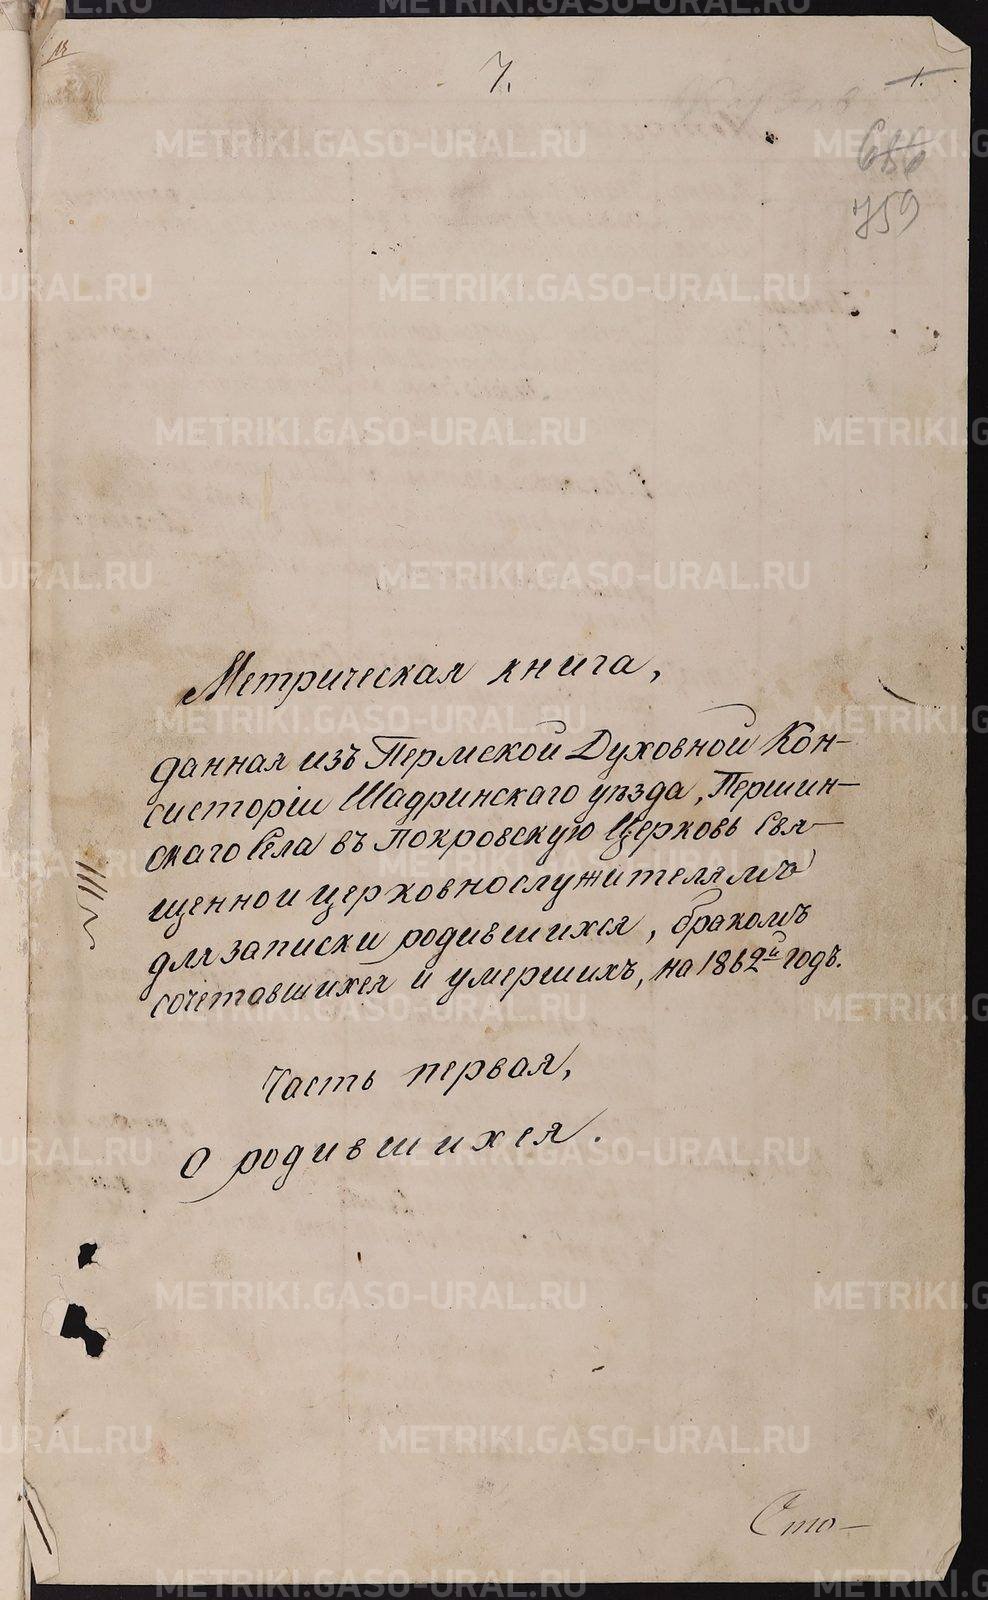 7.
1.
686
759
Метрическая книга,
данная изъ Пермской Духовной Кон-
систоріи Шадринскаго уѣзда, Першин-
скаго Села въ Покровскую Церковь Свя-
щенно и церковнослужителямъ
для записки родившихся, бракомъ
сочетавшихся и умершихъ, на 1862й годъ.
Часть первая,
О родившихся.
Сто-
METRIKI.GASO-URAL.RU